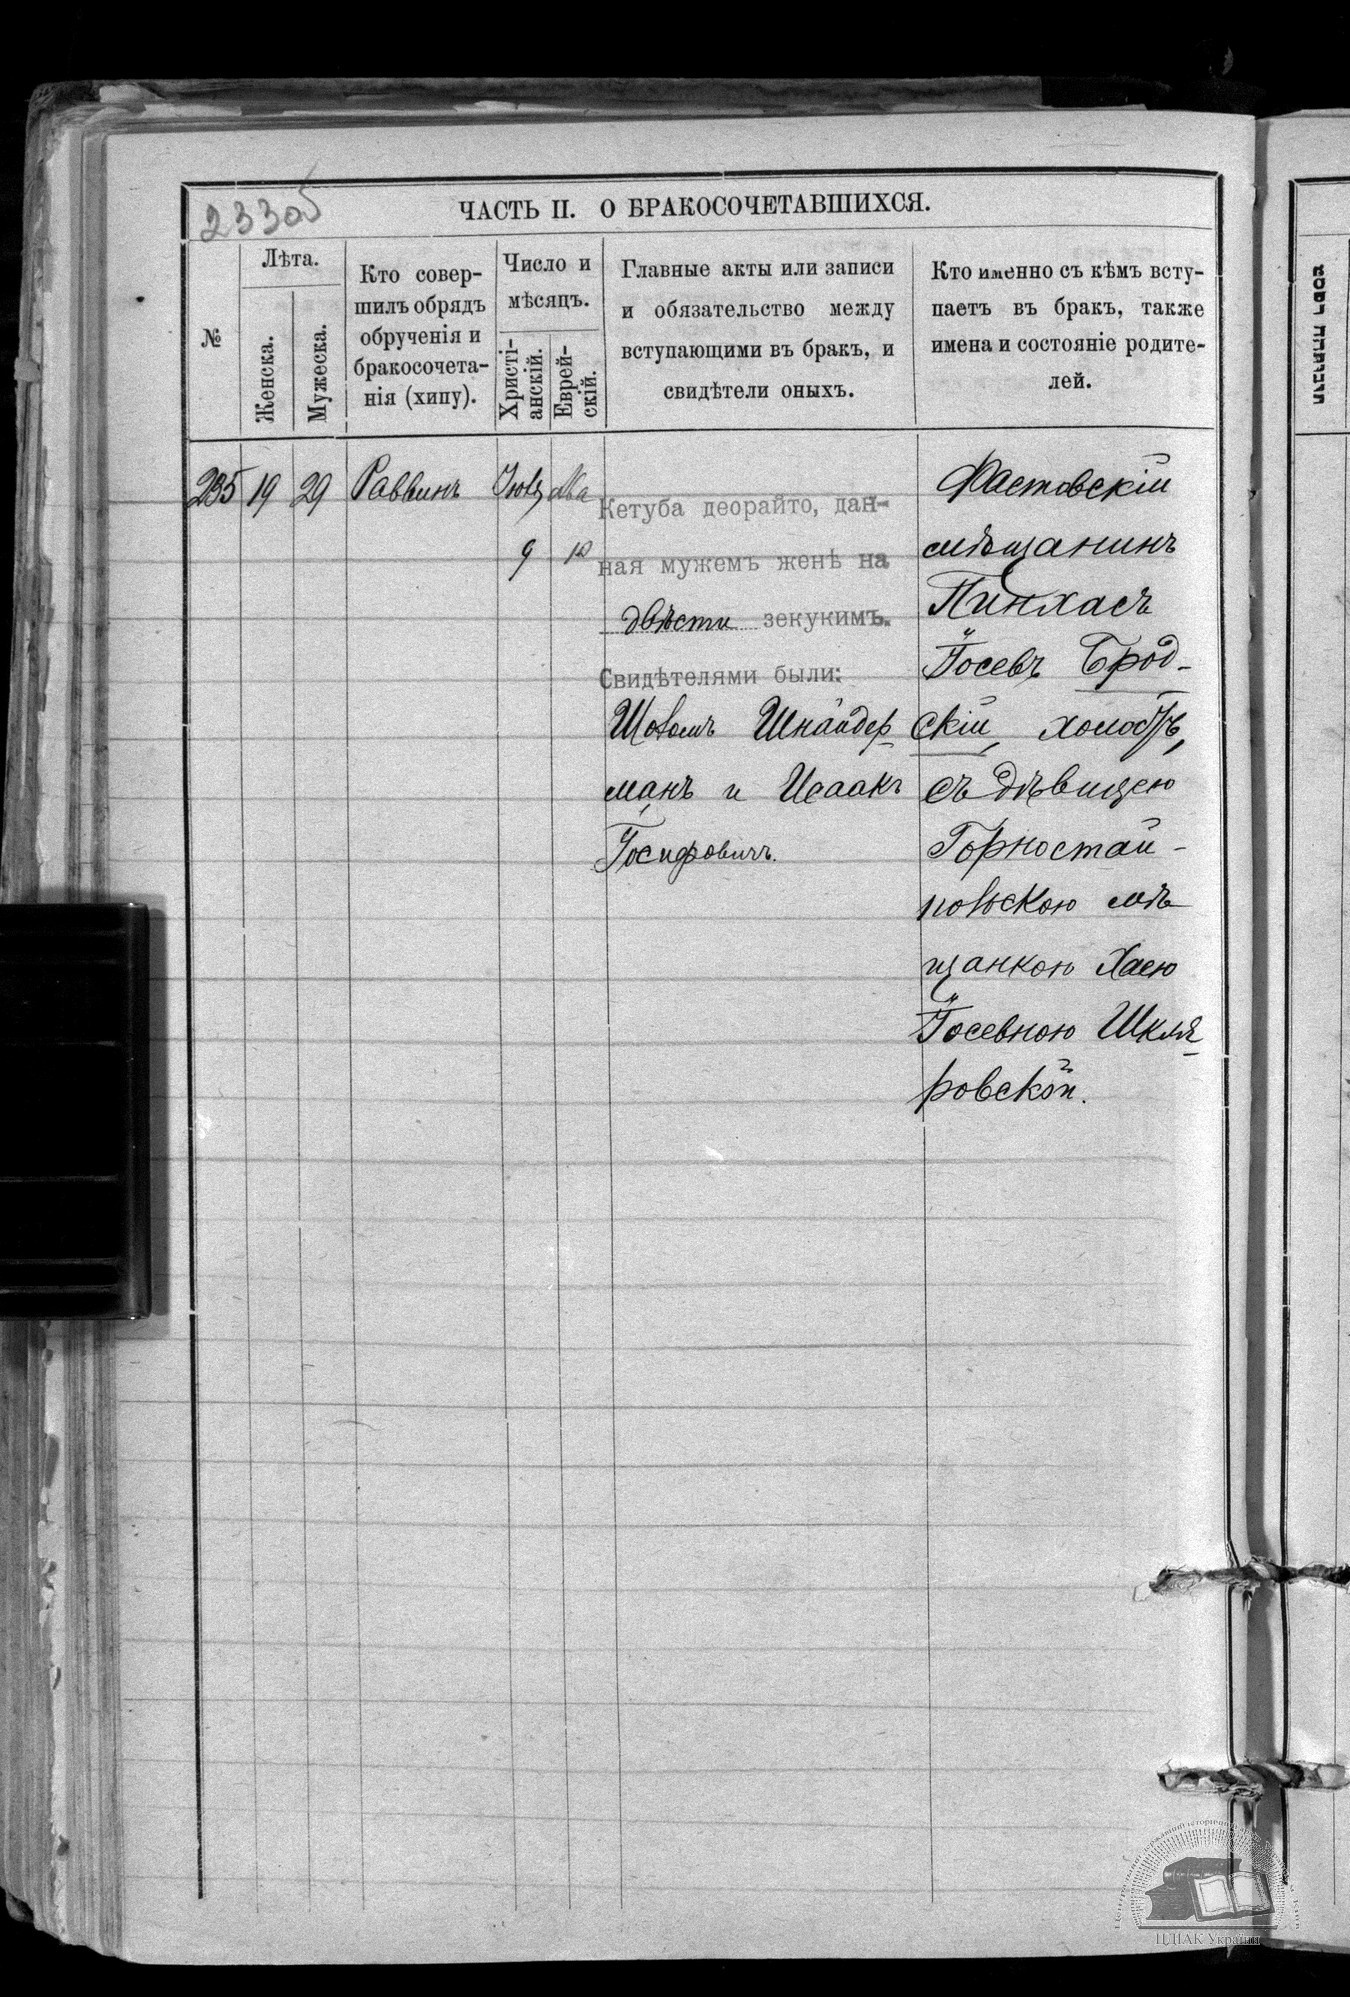 23305
ЧАСТЬ II. О БРАКОСОЧЕТАВШИХСЯ.
№
Лѣта.
Женска.
Мужеска.
Кто совер-
шилъ обрядъ
обрученія и
бракосочета-
нія (хипу).
Число и
мѣсяцъ.
Христі-
анскій.
Еврей-
скій.
Главные акты или записи
и обязательство между
вступающими въ бракъ, и
свидѣтели оныхъ.
Кто именно съ кѣмъ всту-
паетъ въ бракъ, также
имена и состояніе родите-
лей.
235
19
29
Раввинъ
9
Кетуба деорайто, дан-
ная мужемъ женѣ на
двѣсти зекукимъ.
Свидѣтелями были:
Шнайдер
манъ и Исаакъ
Іосифовичъ.
Фастовскій
мѣщанинъ
Пинхасъ
Іосевъ Брод-
скій, холостъ,
съ дѣвицею
Горностай-
польскою мѣ
щанкою Хаею
Іосевною Шкля
ровской.
ЦДІАК України